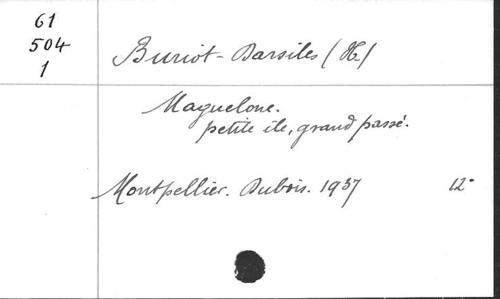 61
504
1
Buriot-Darsiles (H.)
Maguelone.
petite île, grand passé.
Montpellier. Dubois. 1937 12°